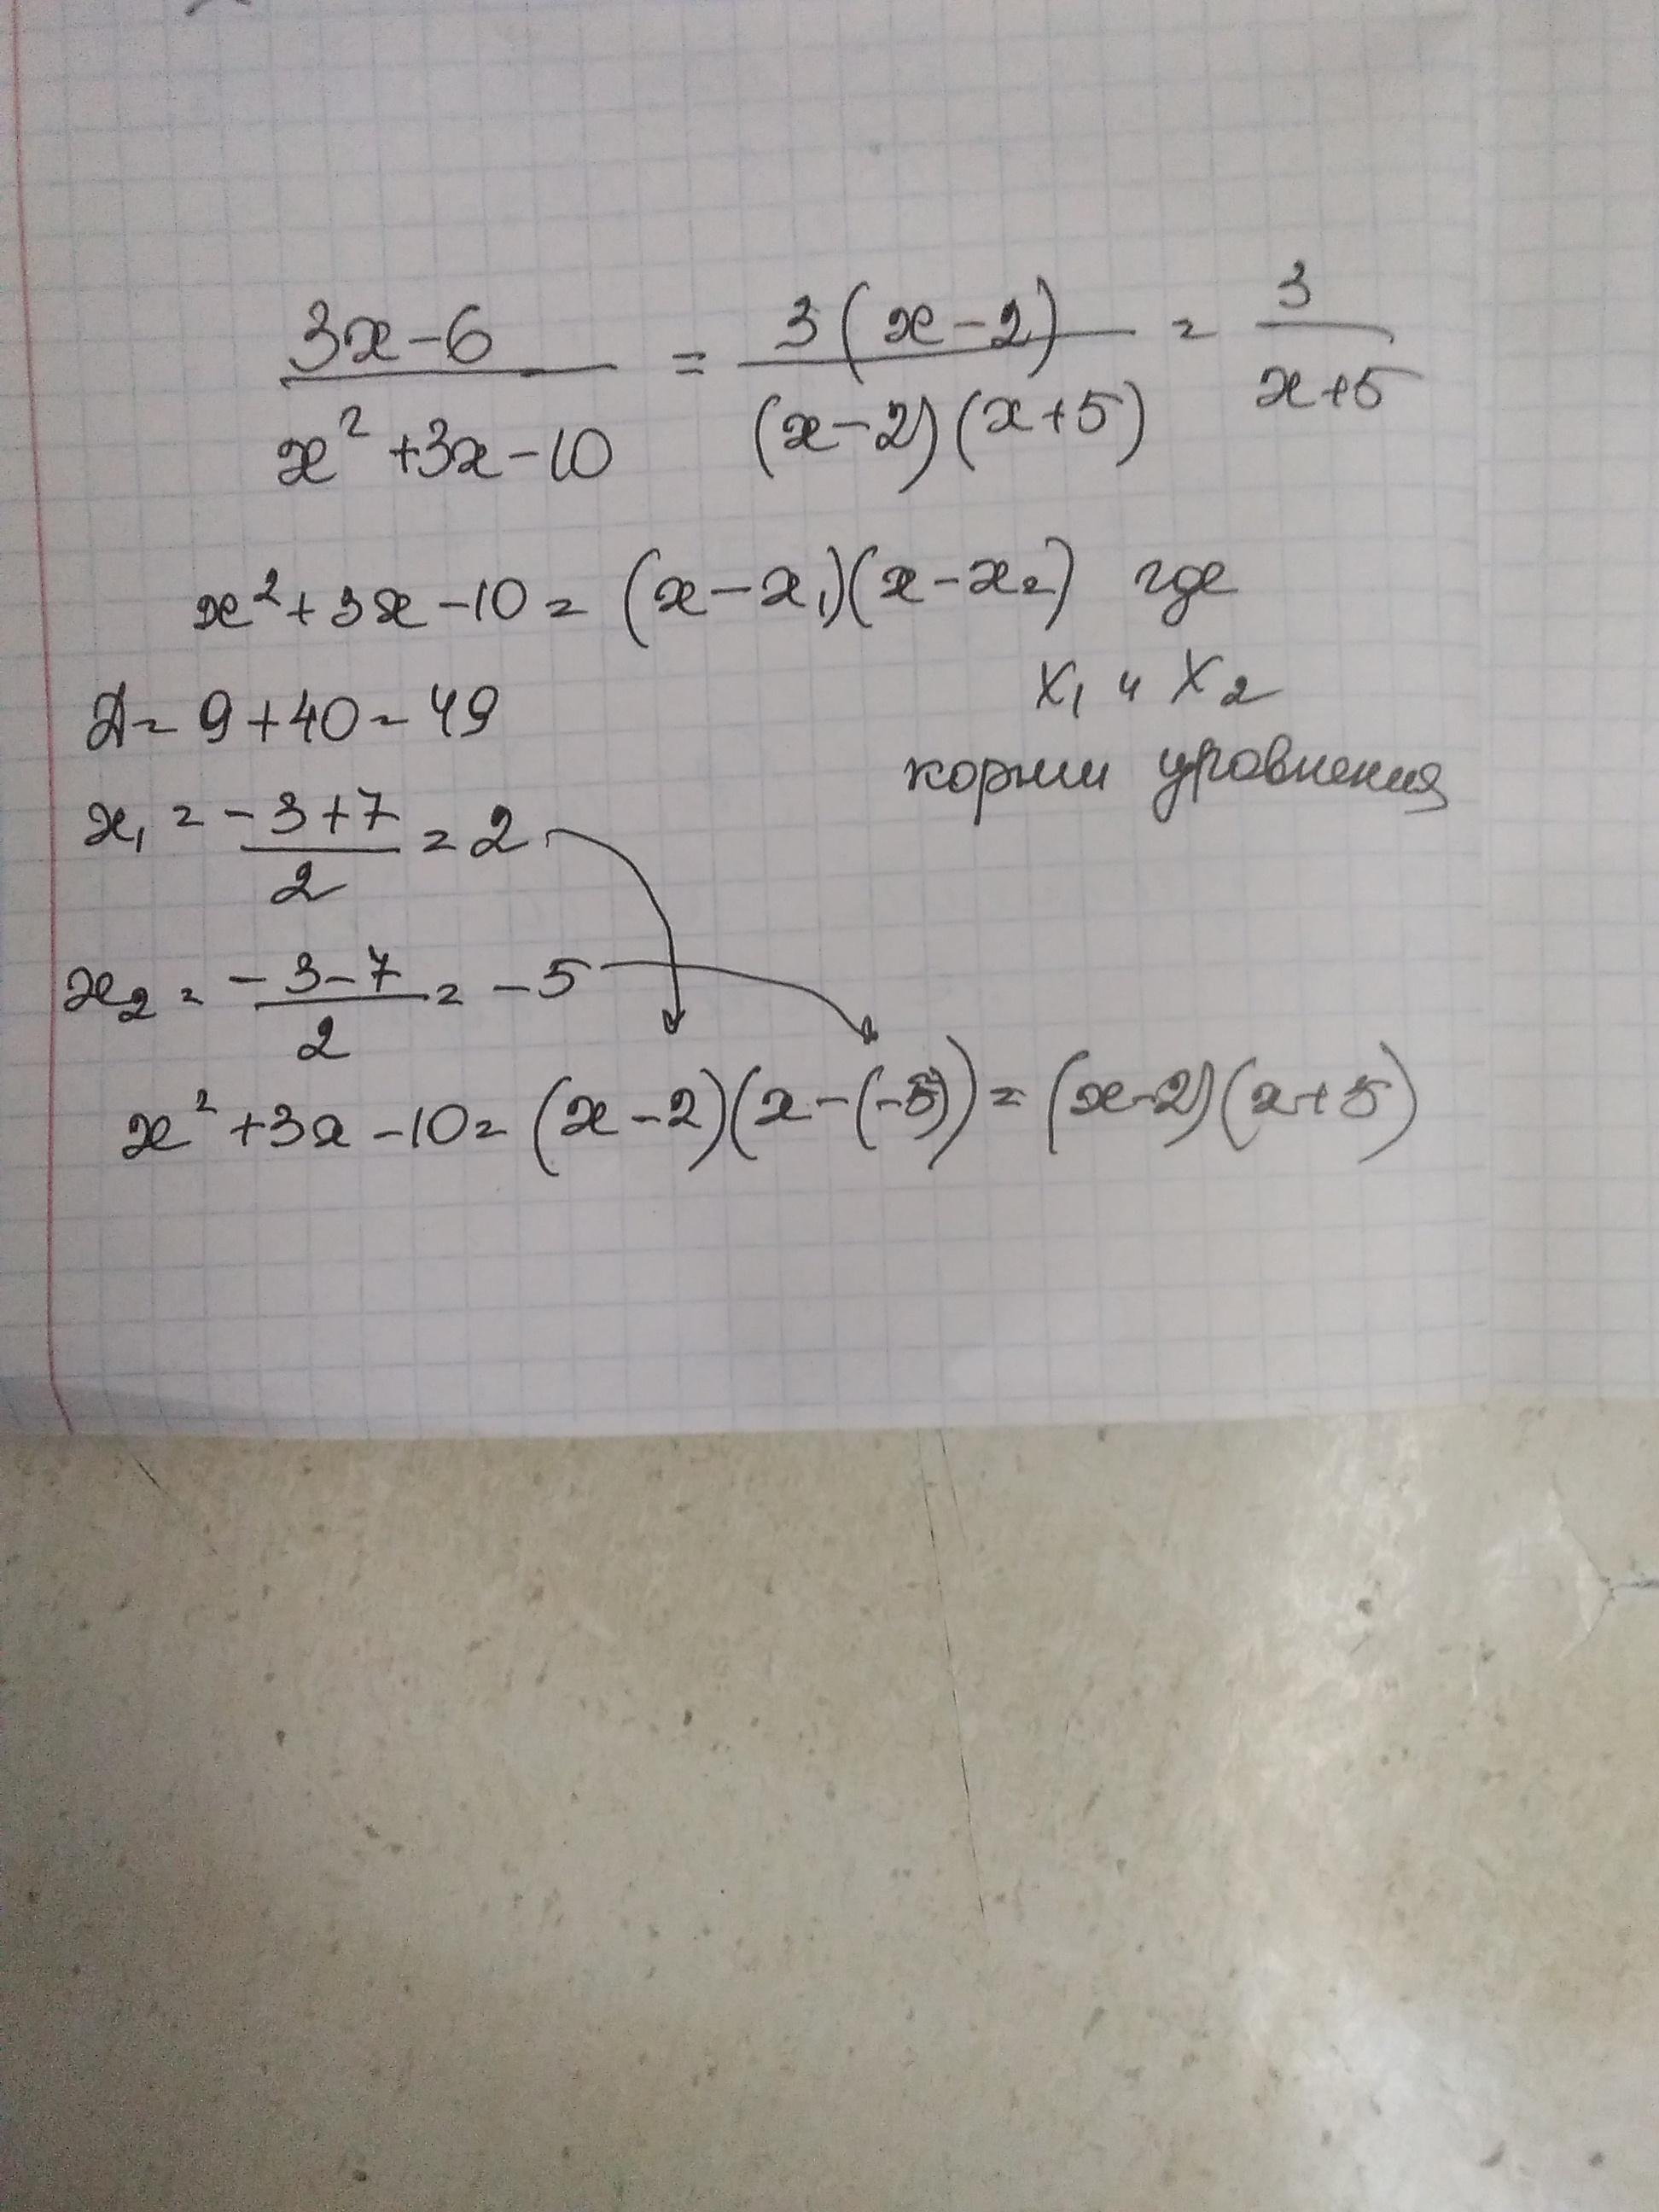 3x-6 / x² +3x-10 = 3(x-2) / (x-2)(x+5) = 3 / x+5
x²+3x-10 = (x-x₁)(x-x₂) где
x₁ и x₂
корни уравнения
Д = 9+40 = 49
x₁ = -3+7 / 2 = 2
x₂ = -3-7 / 2 = -5
x² +3x-10 = (x-2)(x-(-5)) = (x-2)(x+5)